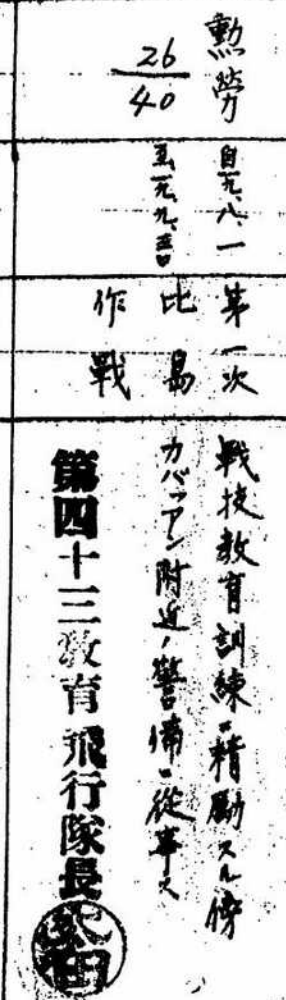 勲労
26
40
自一九、八、一
至一九、九、三〇
第一次
比島
作戰
戰技教育訓練ニ精励スル傍
カバナツアン附近ノ警備ニ從事ス
第四十三教育飛行隊長